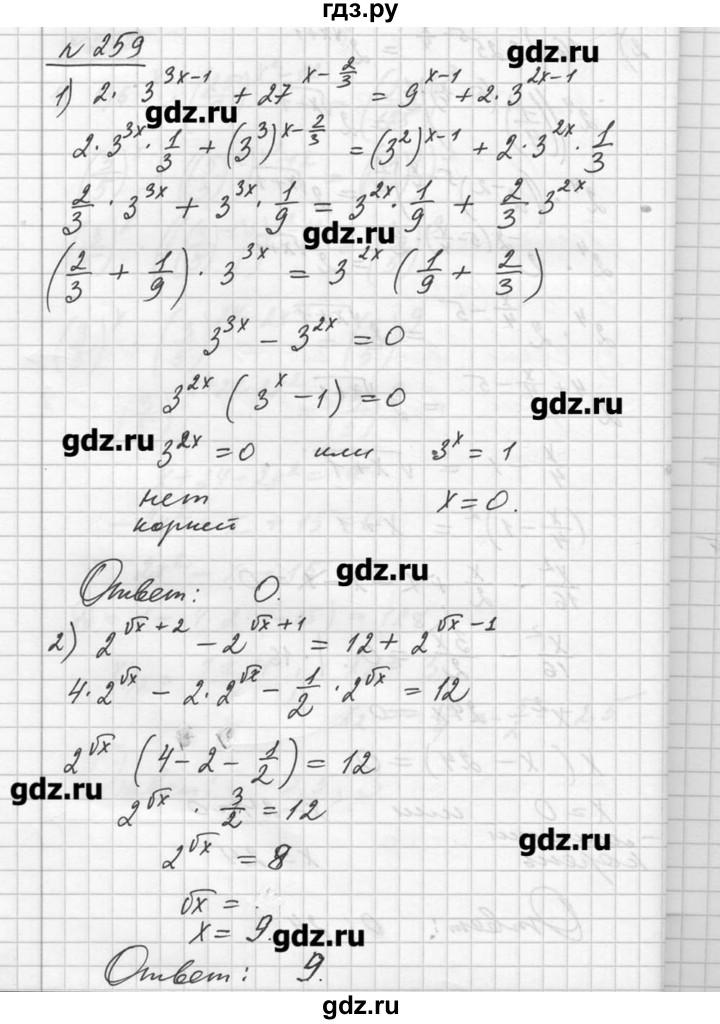 гдз.ру
№ 259
gdz.ru
1) 2·3^(3x-1) + 27^(x-2/3) = 9^(x-1) + 2·3^(2x-1)
gdz.ru
2·3^(3x)·1/3 + (3^3)^(x-2/3) = (3^2)^(x-1) + 2·3^(2x)·1/3
2/3·3^(3x) + 3^(3x)·1/9 = 3^(2x)·1/9 + 2/3 3^(2x)
gdz.ru
(2/3 + 1/9)·3^(3x) = 3^(2x) (1/9 + 2/3)
3^(3x) - 3^(2x) = 0
3^(2x) (3^x - 1) = 0
gdz.ru
gdz.ru
3^(2x) = 0 или 3^x = 1
нет x = 0.
корней
gdz.ru
Ответ: 0.
2) 2^(√x + 2) - 2^(√x + 1) = 12 + 2^(√x - 1)
4·2^(√x) - 2·2^(√x) - 1/2·2^(√x) = 12
2^(√x) (4 - 2 - 1/2) = 12
gdz.ru
2^(√x) · 3/2 = 12
gdz.ru
2^(√x) = 8
√x =
x = 9.
gdz.ru
Ответ: 9.
gdz.ru